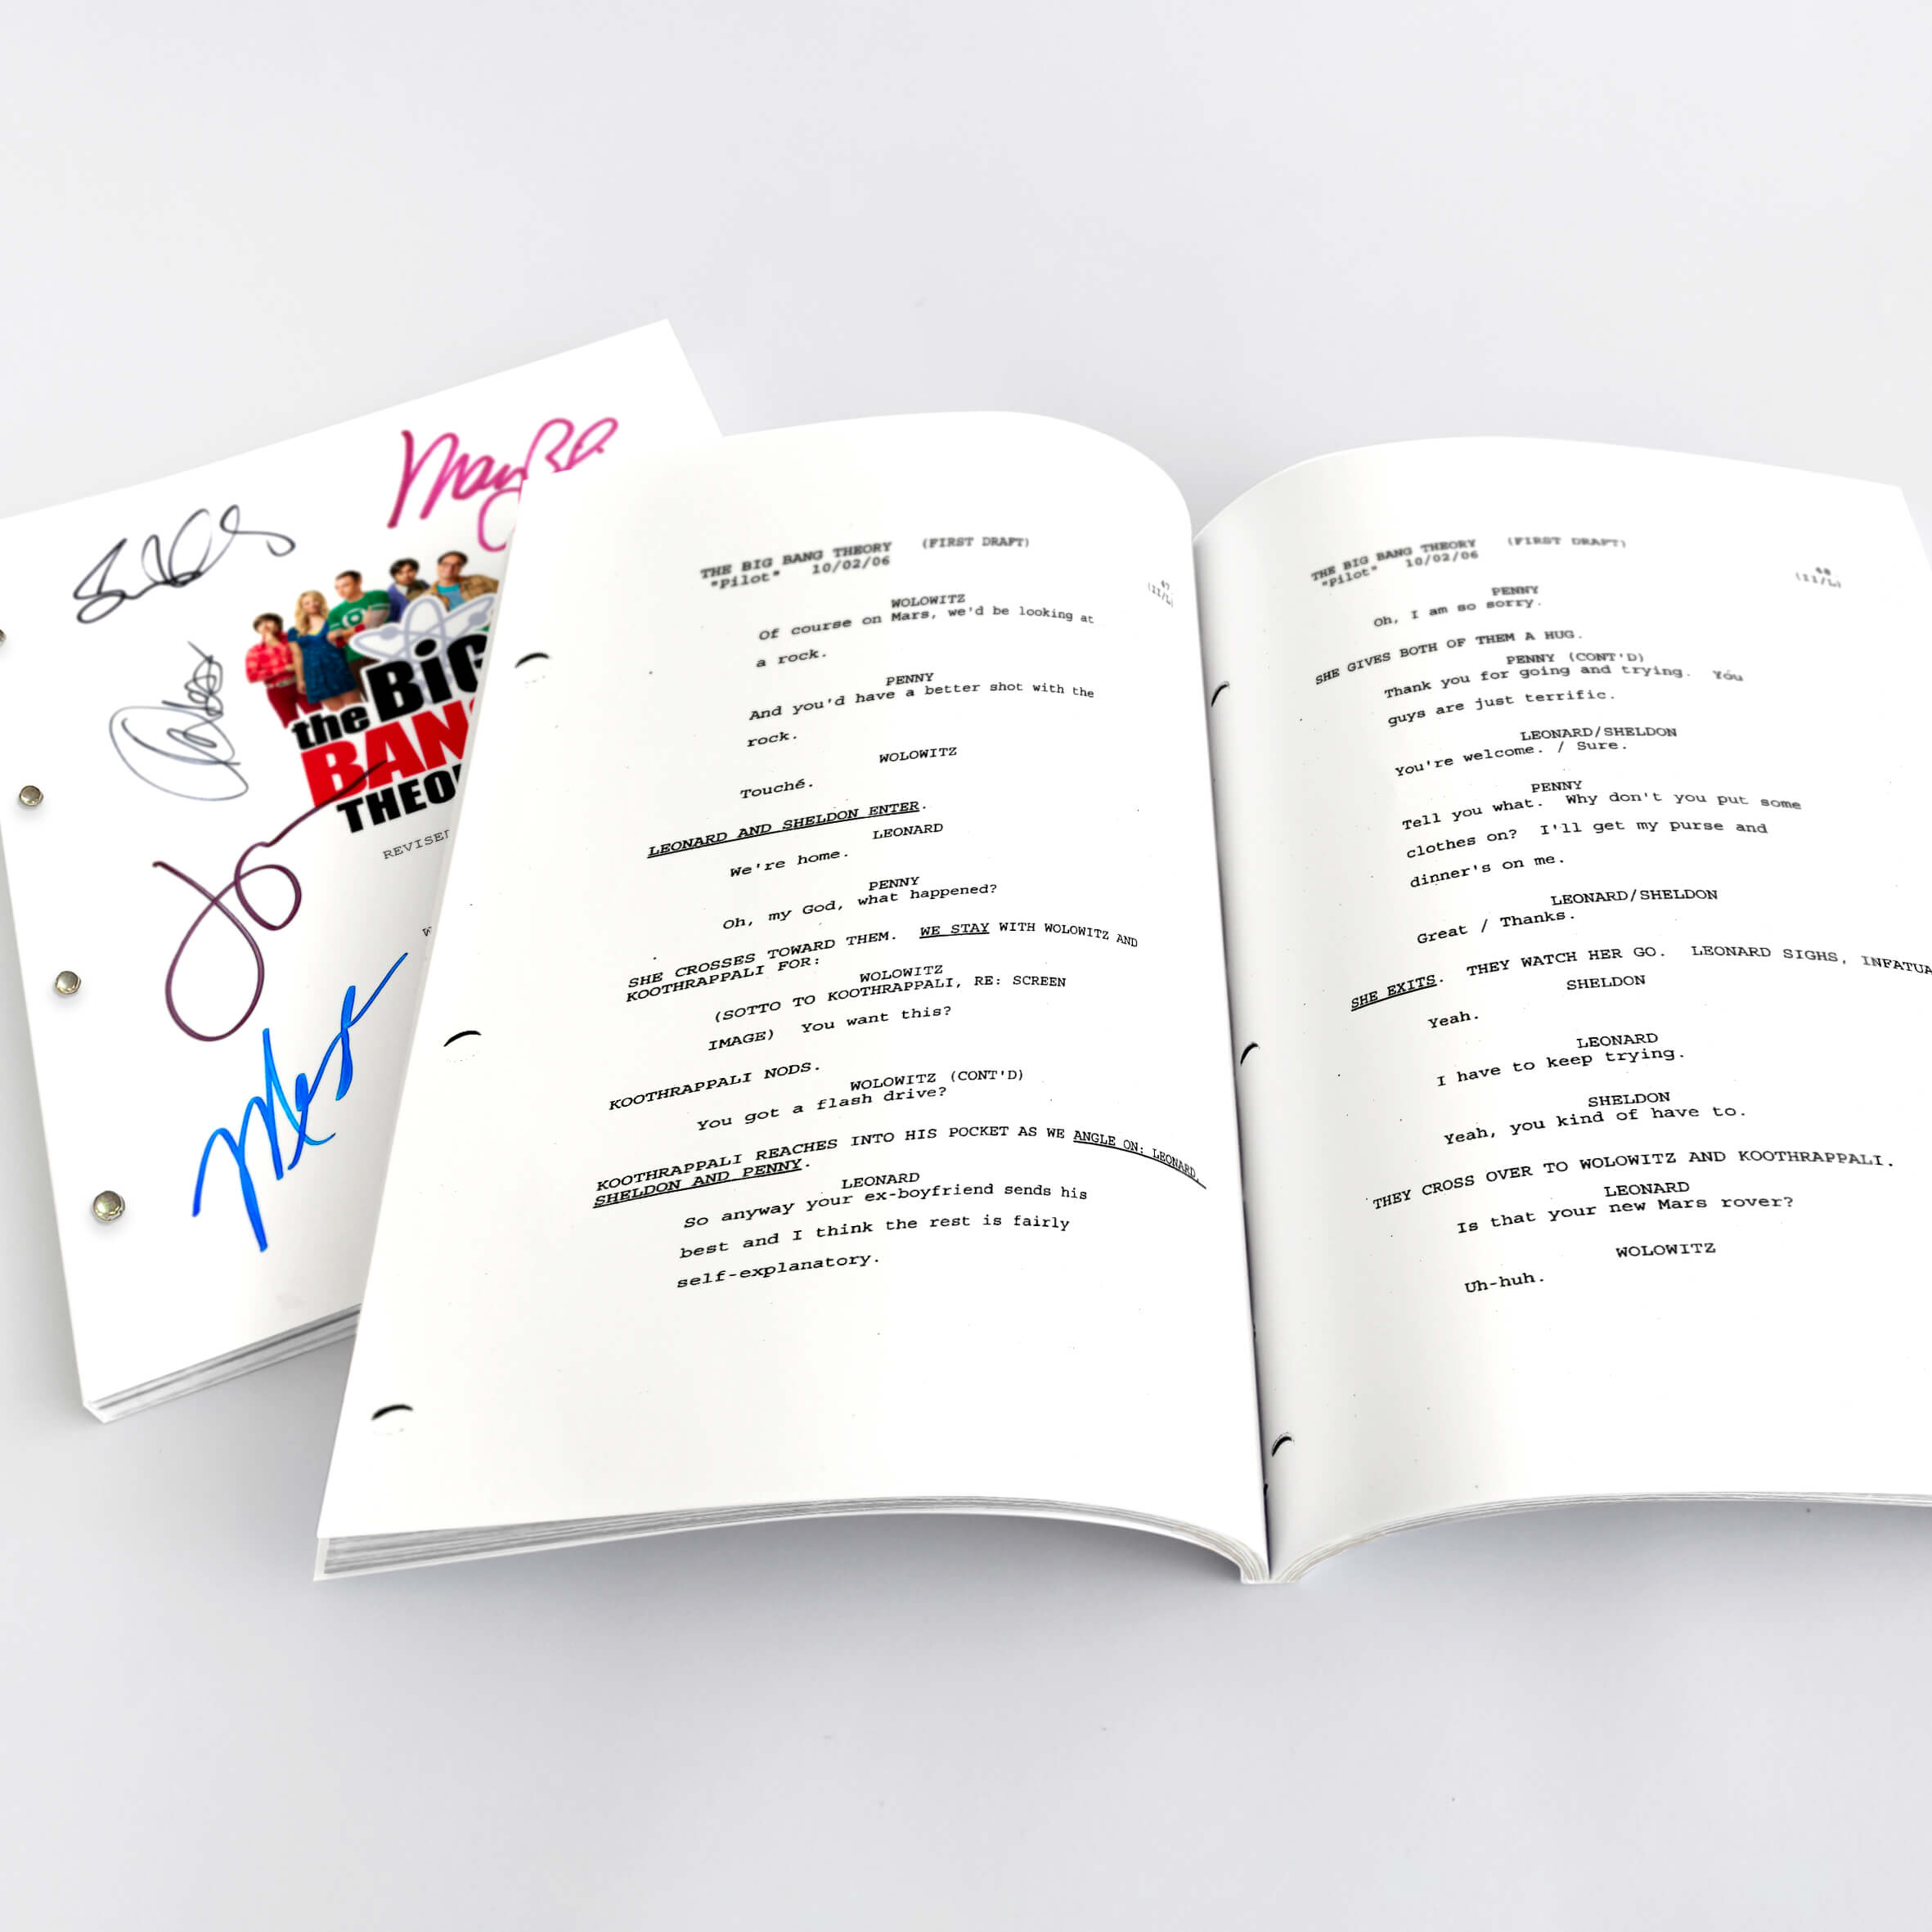 the BiG
BANG
THEO
REVISED
THE BIG BANG THEORY (FIRST DRAFT)
"Pilot" 10/02/06
47
(II/L)
WOLOWITZ
Of course on Mars, we'd be looking at
a rock.
PENNY
And you'd have a better shot with the
rock.
WOLOWITZ
Touché.
LEONARD AND SHELDON ENTER.
LEONARD
We're home.
PENNY
Oh, my God, what happened?
SHE CROSSES TOWARD THEM. WE STAY WITH WOLOWITZ AND
KOOTHRAPPALI FOR:
WOLOWITZ
(SOTTO TO KOOTHRAPPALI, RE: SCREEN
IMAGE) You want this?
KOOTHRAPPALI NODS.
WOLOWITZ (CONT'D)
You got a flash drive?
KOOTHRAPPALI REACHES INTO HIS POCKET AS WE ANGLE ON: LEONARD,
SHELDON AND PENNY.
LEONARD
So anyway your ex-boyfriend sends his
best and I think the rest is fairly
self-explanatory.
THE BIG BANG THEORY (FIRST DRAFT)
"Pilot" 10/02/06
48
(II/L)
PENNY
Oh, I am so sorry.
SHE GIVES BOTH OF THEM A HUG.
PENNY (CONT'D)
Thank you for going and trying. You
guys are just terrific.
LEONARD/SHELDON
You're welcome. / Sure.
PENNY
Tell you what. Why don't you put some
clothes on? I'll get my purse and
dinner's on me.
LEONARD/SHELDON
Great / Thanks.
SHE EXITS. THEY WATCH HER GO. LEONARD SIGHS, INFATUA
SHELDON
Yeah.
LEONARD
I have to keep trying.
SHELDON
Yeah, you kind of have to.
THEY CROSS OVER TO WOLOWITZ AND KOOTHRAPPALI.
LEONARD
Is that your new Mars rover?
WOLOWITZ
Uh-huh.